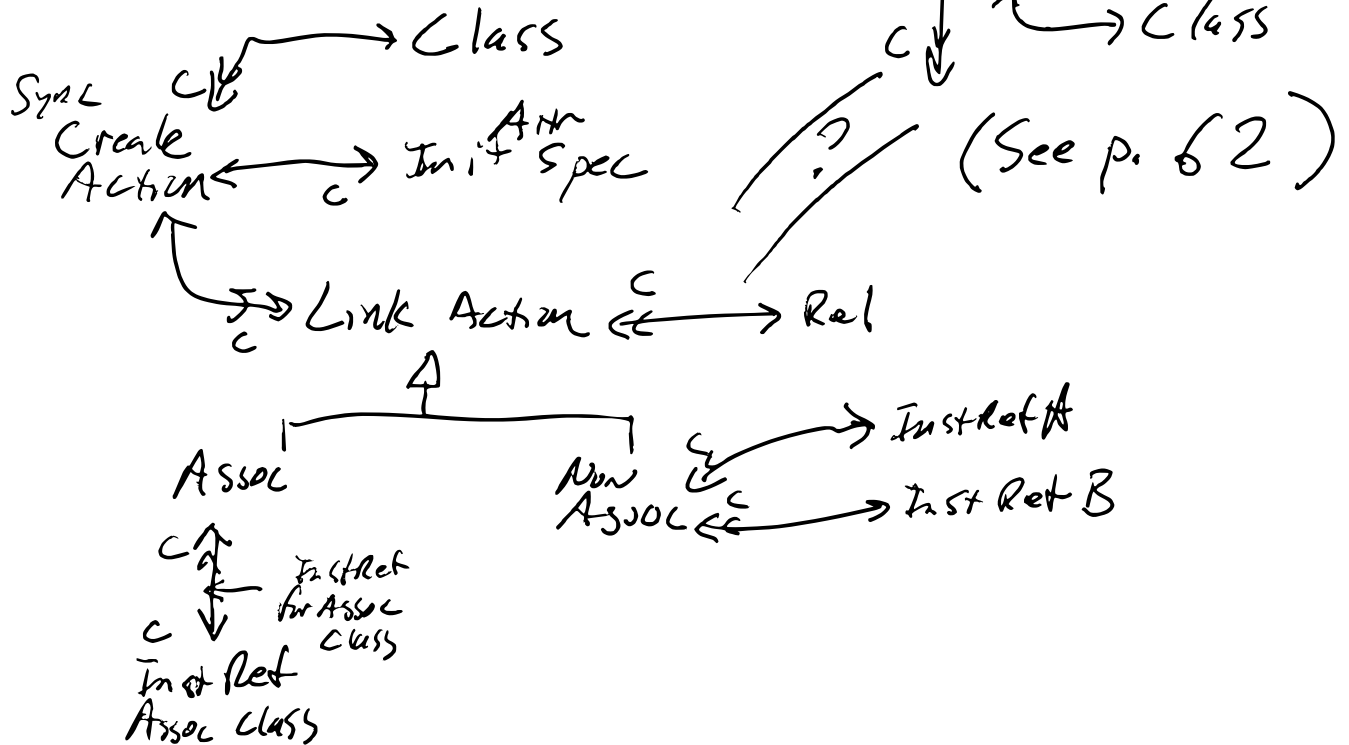 C Class
C Class
Sync
Create
Action
C
Init Attr Spec
C
?
(See p. 62)
Link Action
C
C
Rel
Assoc
Non
Assoc
C
C
InstRef A
InstRef B
C
InstRef
for Assoc
Class
C
Inst Ref
Assoc class